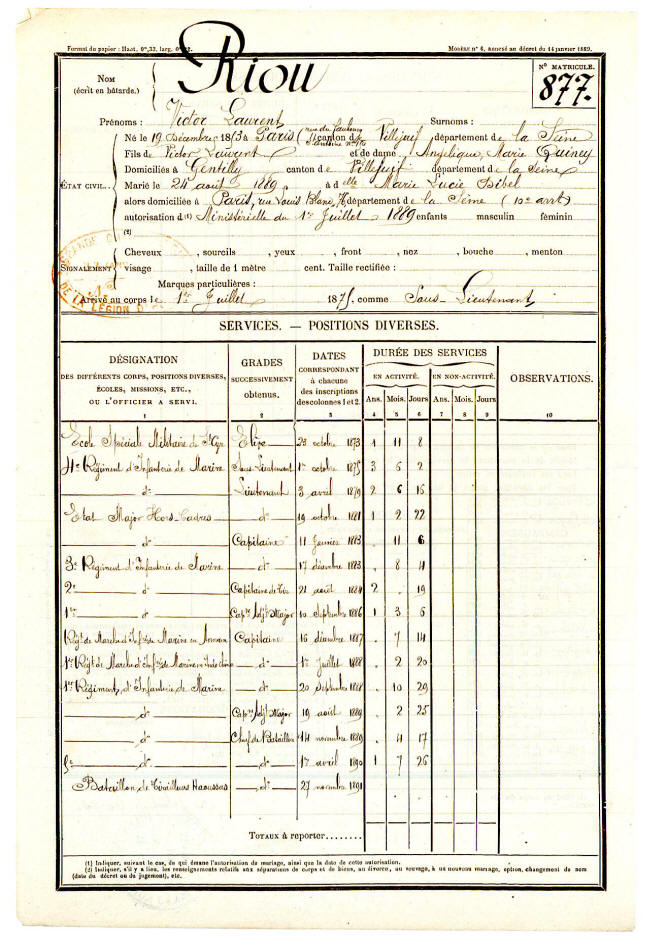 Format du papier : Haut. 0m,33, larg. 0m,22.
Modèle n° 6, annexé au décret du 14 janvier 1889.
Nom
(écrit en bâtarde.)
Riou
N° MATRICULE.
877.
Prénoms : Victor Laurent Surnoms :
ÉTAT CIVIL..
Né le 19 Décembre 1853 à Paris (rue du Faubourg St Antoine n° canton de Villejuif département de la Seine
Fils de Victor Laurent et de dame Angélique Marie Quincy
Domiciliés à Gentilly canton de Villejuif département de la Seine
Marié le 24 août 1889 à d elle Marie Lucie Isibel
alors domiciliée à Paris, rue Louis Blanc, département de la Seine (10e arrt)
autorisation d(1) Ministérielle du 1er Juillet 1889 enfants masculin féminin
(2)
SIGNALEMENT
Cheveux , sourcils , yeux , front , nez , bouche , menton
visage , taille de 1 mètre cent. Taille rectifiée :
Marques particulières :
DE LA LÉGION D'
Arrivé au corps le 1er Juillet 1875, comme Sous-Lieutenant
SERVICES. — POSITIONS DIVERSES.
DÉSIGNATION
DES DIFFÉRENTS CORPS, POSITIONS DIVERSES,
ÉCOLES, MISSIONS, ETC.,
OU L'OFFICIER A SERVI.
GRADES
SUCCESSIVEMENT
obtenus.
DATES
CORRESPONDANT
à chacune
des inscriptions
des colonnes 1 et 2.
DURÉE DES SERVICES
EN ACTIVITÉ. EN NON-ACTIVITÉ.
Ans. Mois. Jours Ans. Mois. Jours
OBSERVATIONS.
1 2 3 4 5 6 7 8 9 10
Ecole Spéciale Militaire de St Cyr Elève 23 octobre 1873 1 11 8
4e Régiment d'Infanterie de Marine Sous-Lieutenant 1er octobre 1875 3 6 2
do Lieutenant 3 avril 1879 2 6 16
Etat Major Hors-Cadres do 19 octobre 1881 1 2 22
do Capitaine 11 janvier 1883 . 11 6
3e Régiment d'Infanterie de Marine do 17 décembre 1883 . 8 4
2e do Capitaine de 21 août 1884 2 . 19
1er do Capne Adjt Major 10 Septembre 1886 1 3 6
Régt de Marche d'Infie de Marine en Annam Capitaine 16 décembre 1887 . 7 14
1er Régt de Marche d'Infie de Marine en Indo Chine do 1er Juillet 1888 . 2 20
1er Régiment d'Infanterie de Marine do 20 Septembre 1888 . 10 29
do Capne Adjt Major 19 août 1889 . 2 25
do Chef de Bataillon 14 novembre 1889 . 4 17
do 1er avril 1890 1 7 26
Bataillon de Tirailleurs Haoussas do 27 novembre 1891 . .
TOTAUX à reporter........
(1) Indiquer, suivant le cas, de qui émane l'autorisation de mariage, ainsi que la date de cette autorisation.
(2) Indiquer, s'il y a lieu, les renseignements relatifs aux séparations de corps et de biens, au divorce, au veuvage, à un nouveau mariage, option, changement de nom
(date du décret ou du jugement), etc.